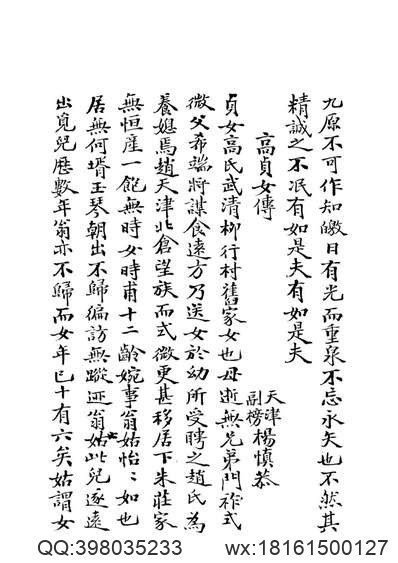 九原不可作知皦日有光而重泉不忘永矢也不然其
精誠之不泯有如是夫有如是夫
高貞女傳
天津
副榜
楊慎恭
貞女高氏武清柳行村舊家女也母逝無兄弟門祚式
微父希端將謀食遠方乃送女於幼所受聘之趙氏為
養媳焉趙天津北倉望族而式微更甚移居下朱莊家
無恒產一飽無時女時甫十二齡婉事翁姑怡〻如也
居無何壻玉琴朝出不歸徧訪無蹤迹翁姑此兒逐遠
出覓兒歷數年翁亦不歸而女年已十有六矣姑謂女
QQ:398035233 wx:18161500127